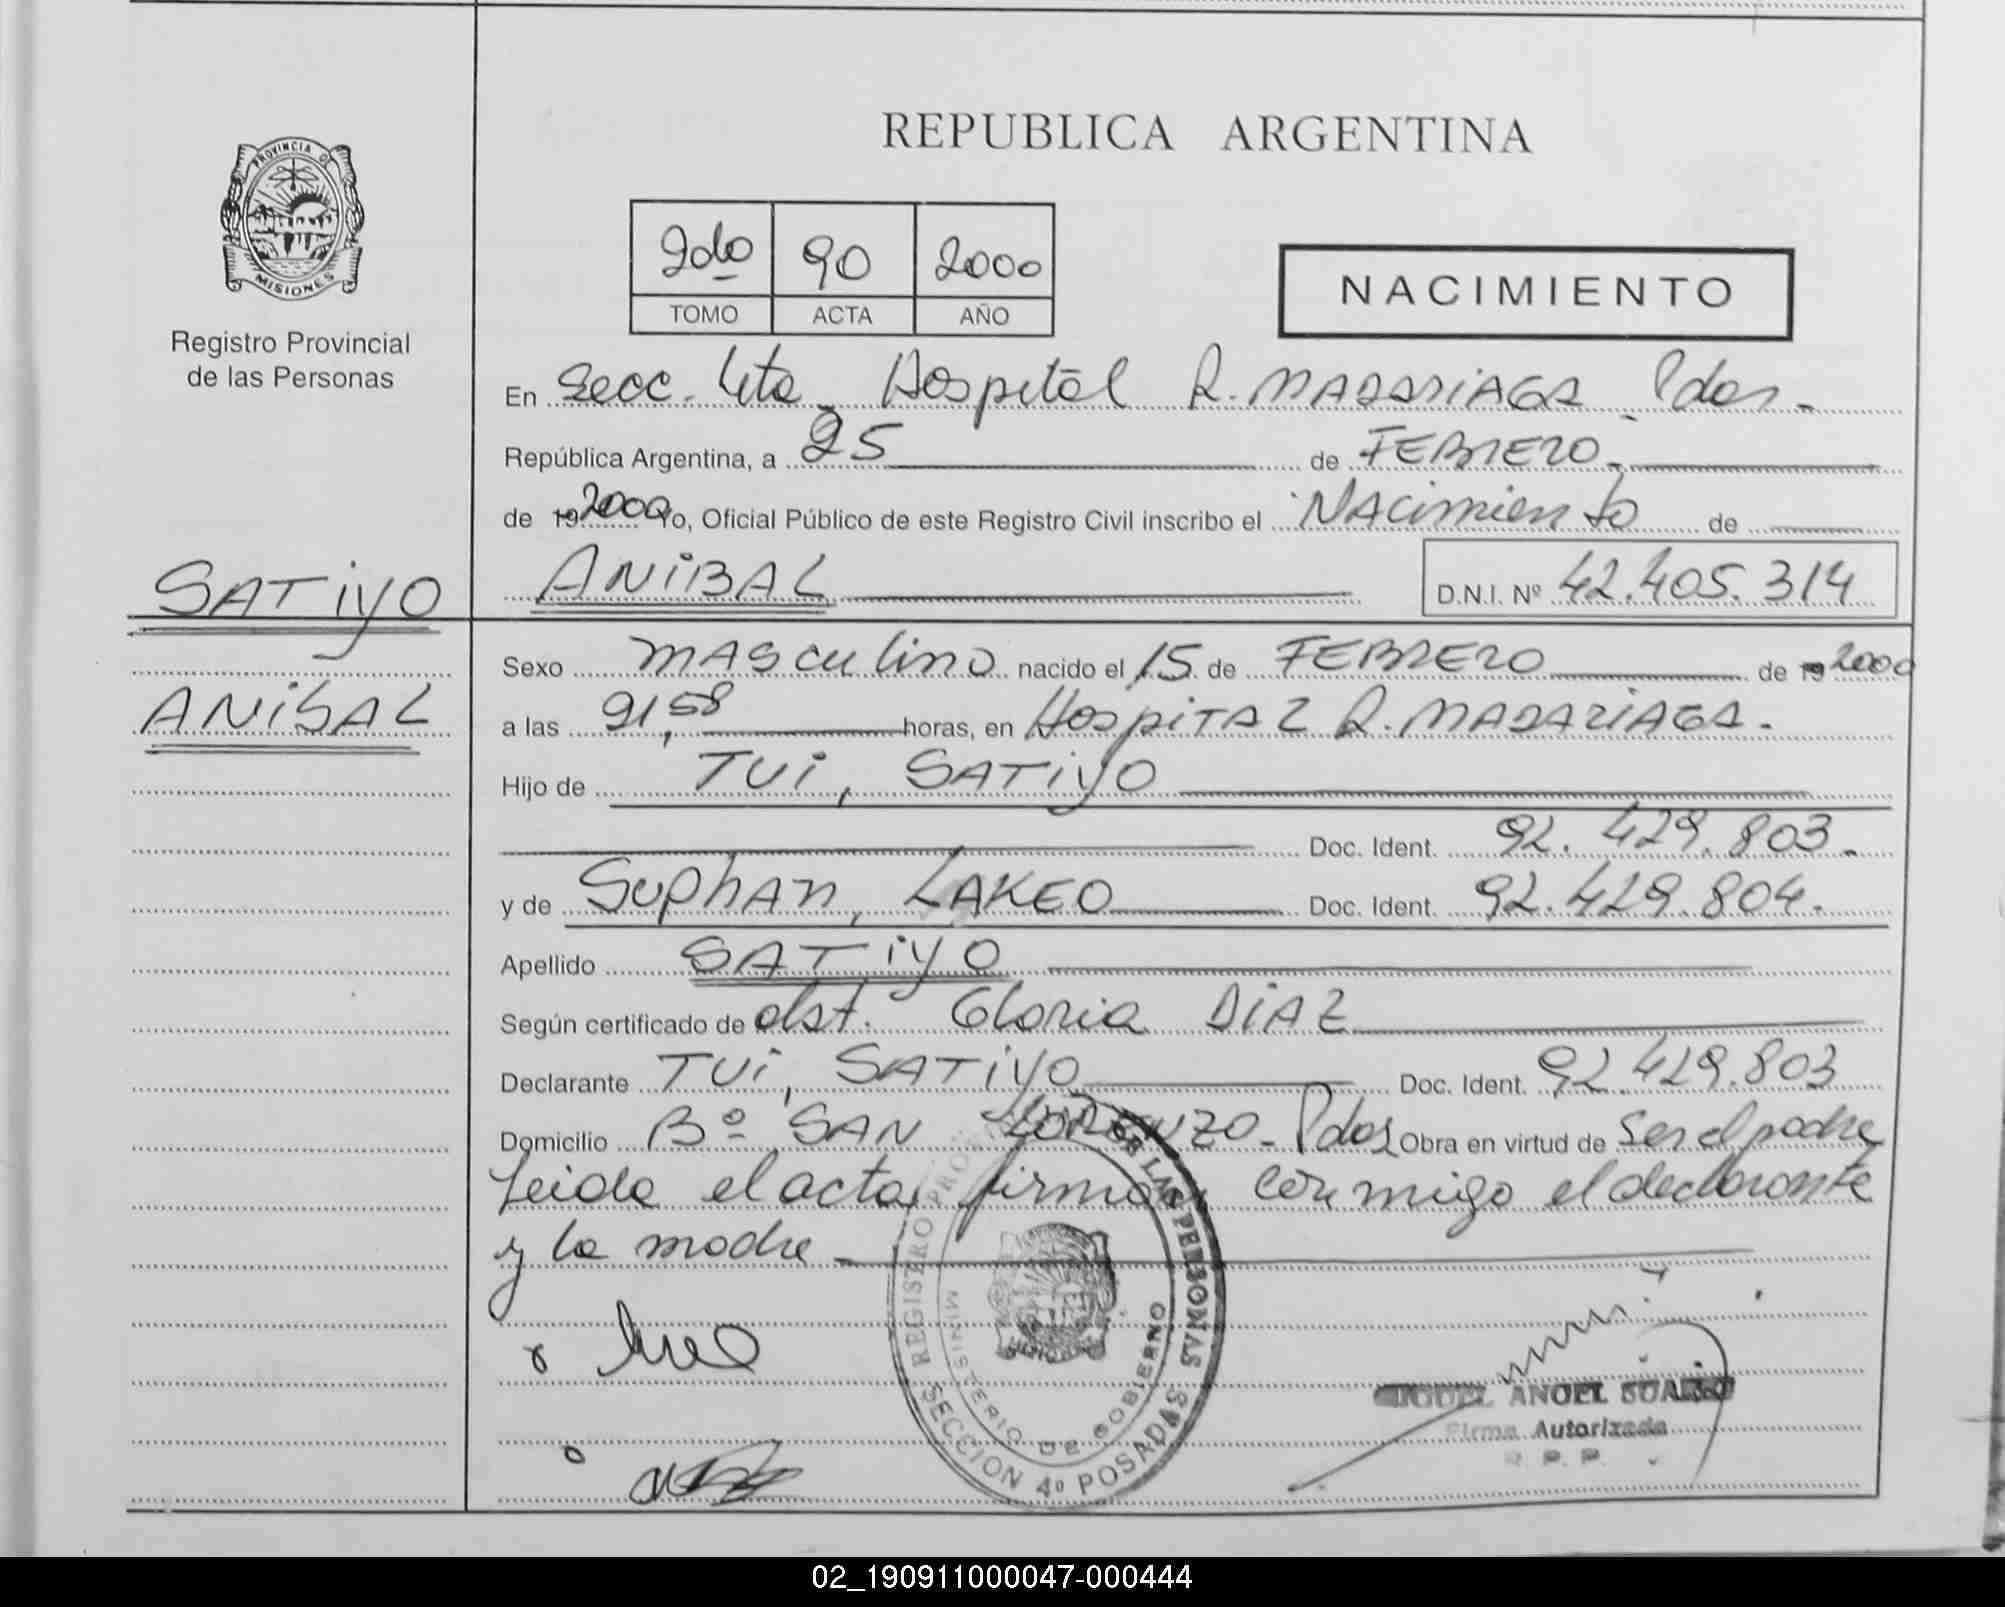 REPUBLICA ARGENTINA
PROVINCIA DE
MISIONES
Registro Provincial
de las Personas
2do 90 2000
TOMO ACTA AÑO
NACIMIENTO
En Secc. 4ta. Hospital R. MADARIAGA. Pdas.
República Argentina, a 25 de FEBRERO.
de 19 2000 Yo, Oficial Público de este Registro Civil inscribo el Nacimiento de
SATIYO
ANIBAL
ANIBAL D.N.I. Nº 42.405.314
Sexo MASculino nacido el 15 de FEBRERO de 19 2000
a las 21,58 horas, en HospiTAL R. MADARIAGA.
Hijo de TUi, SATiYO
Doc. Ident. 92.429.803.
y de SUphAn, LAKEO Doc. Ident. 92.429.804.
Apellido SATiyO
Según certificado de obst. Gloria DiAZ
Declarante TUi, SATiYO Doc. Ident. 92.429.803
Domicilio Bº SAN LORENZO. Pdas Obra en virtud de Ser el padre
Leida el acta, firman conmigo el declarante
y la madre
REGISTRO PROVINCIAL DE LAS PERSONAS
MINISTERIO DE GOBIERNO
SECCION 4º POSADAS
MIGUEL ANGEL SUAREZ
Firma Autorizada
R. P. P.
02_190911000047-000444